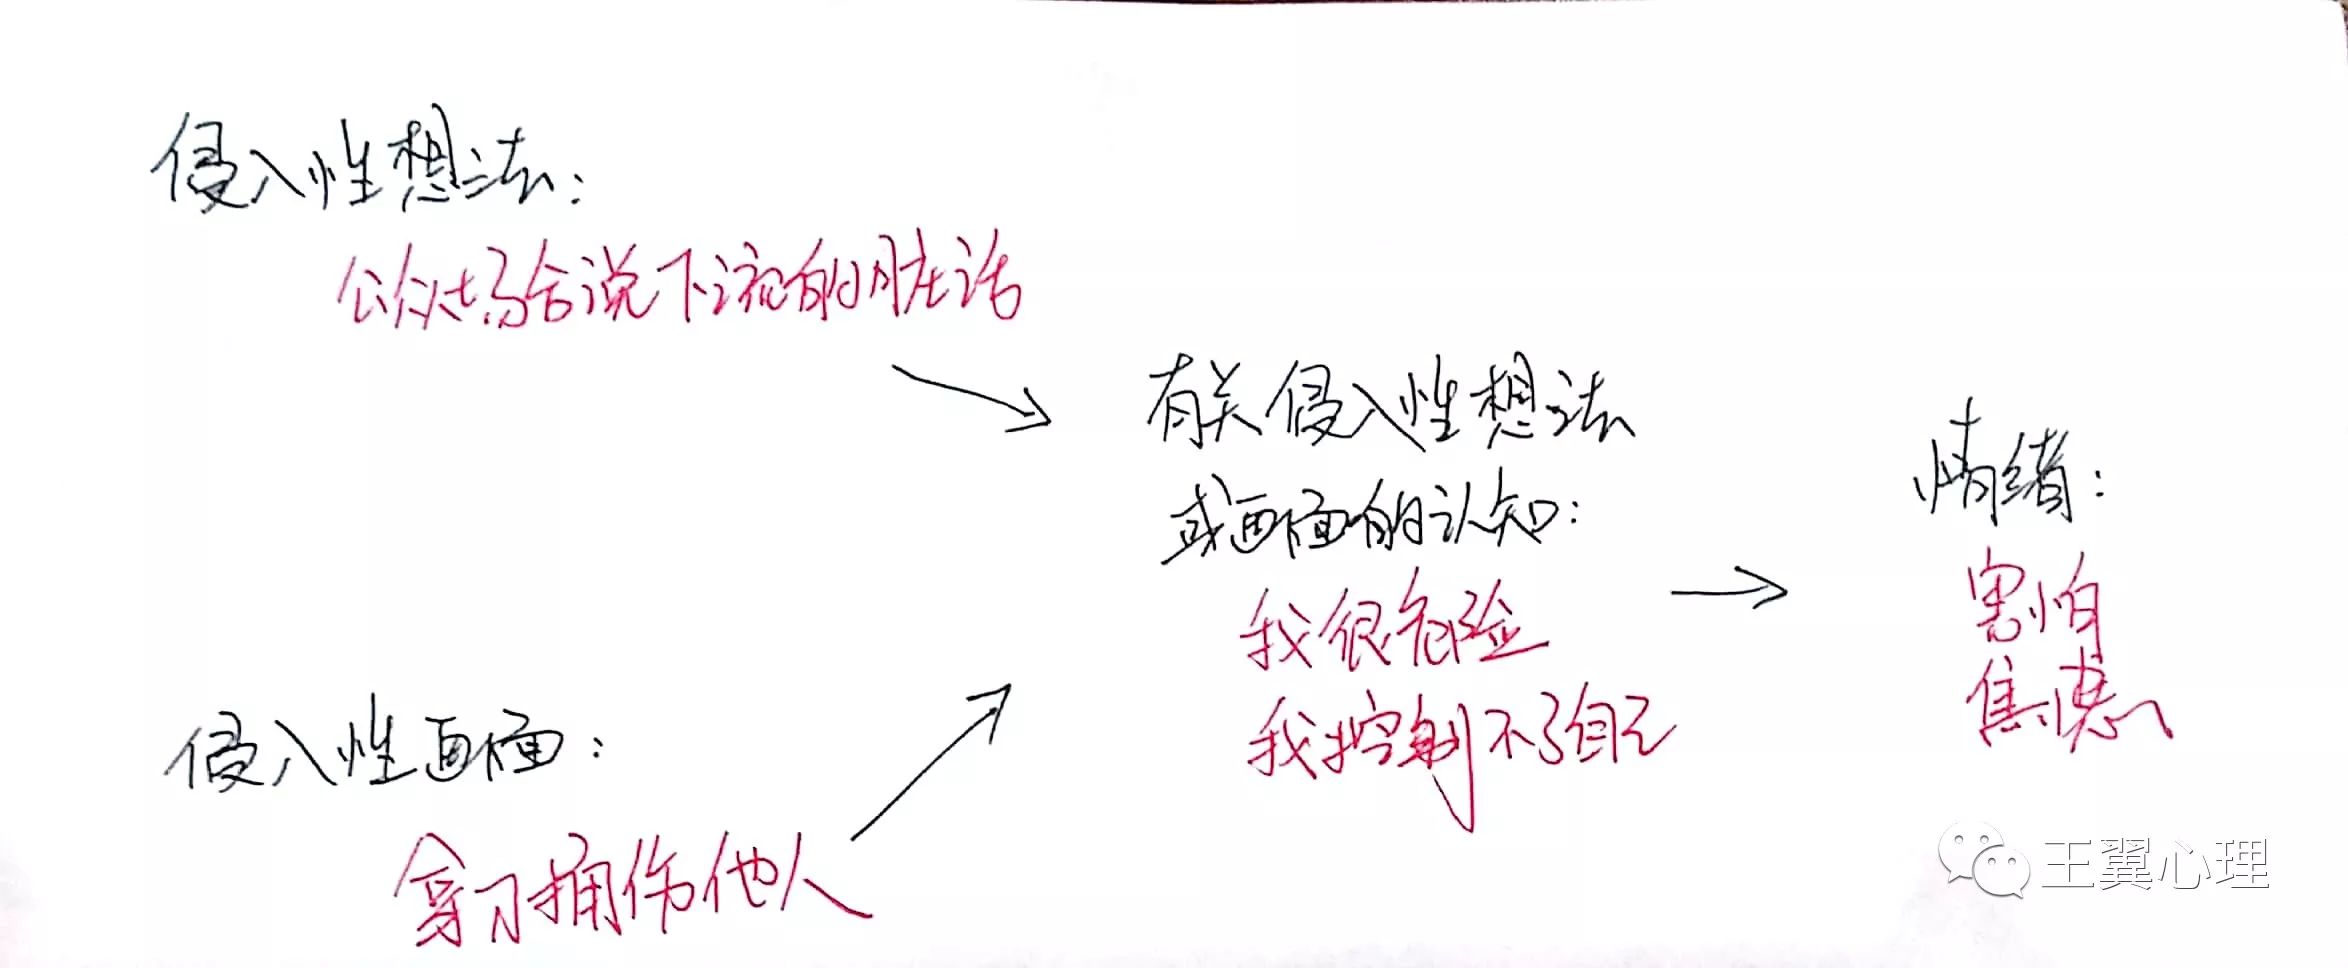 侵入性想法：
公众场合说下流的脏话
有关侵入性想法
或画面的认知：
我很危险
我控制不了自己
情绪：
害怕
焦虑
侵入性画面：
拿刀捅伤他人
王翼心理